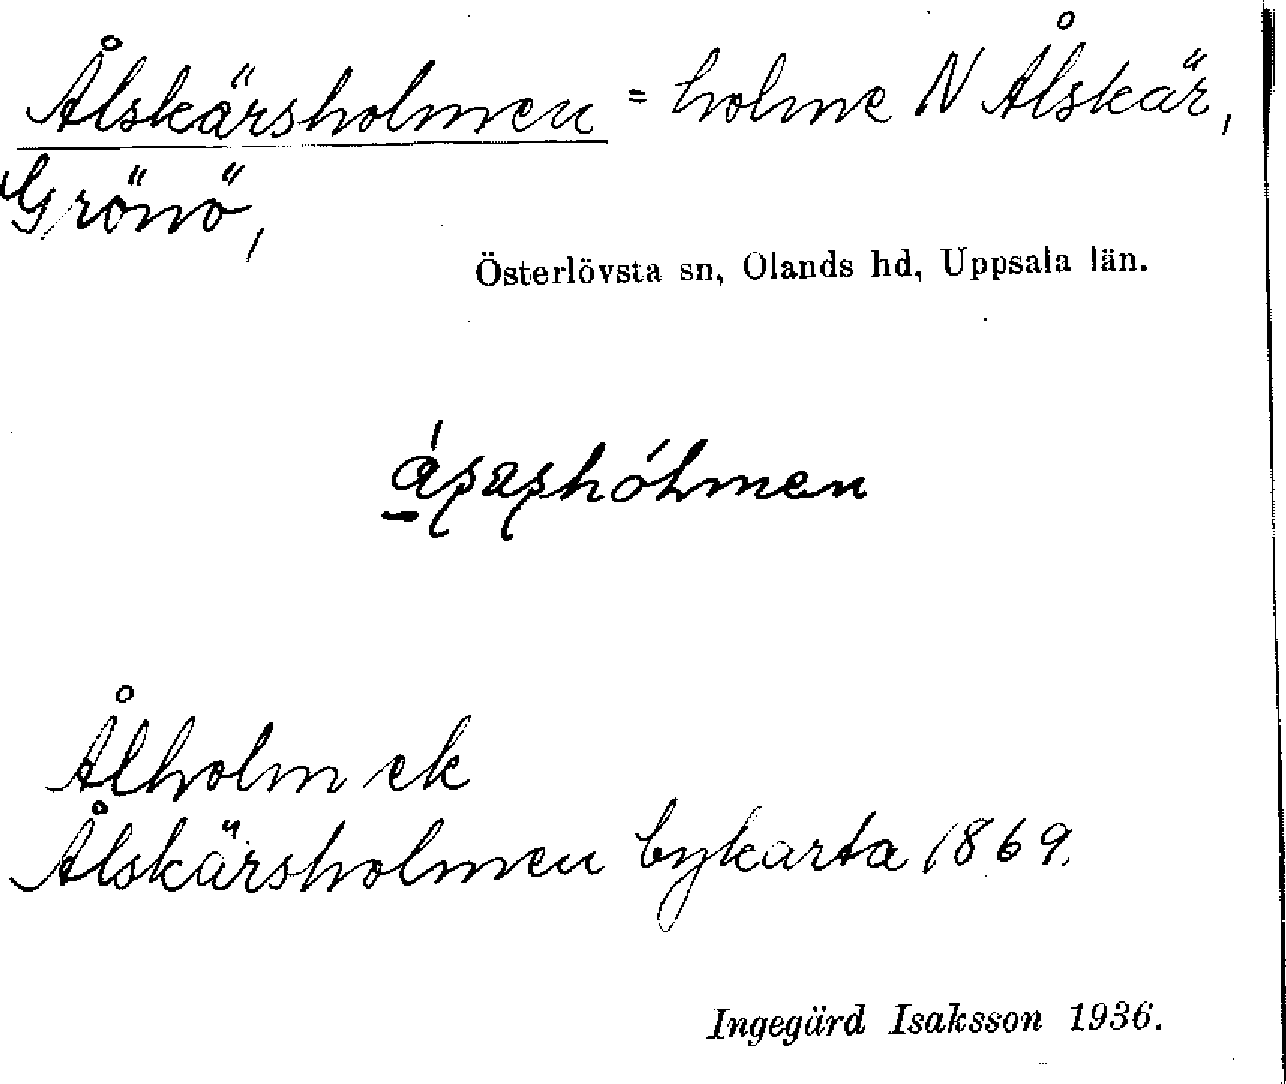 Ålskärsholmen = holme N Ålskär,
Grönö,
Österlövsta sn, Olands hd, Uppsala län.
Ålholm ek
Ålskärsholmen bykarta 1869.
Ingegärd Isaksson 1936.